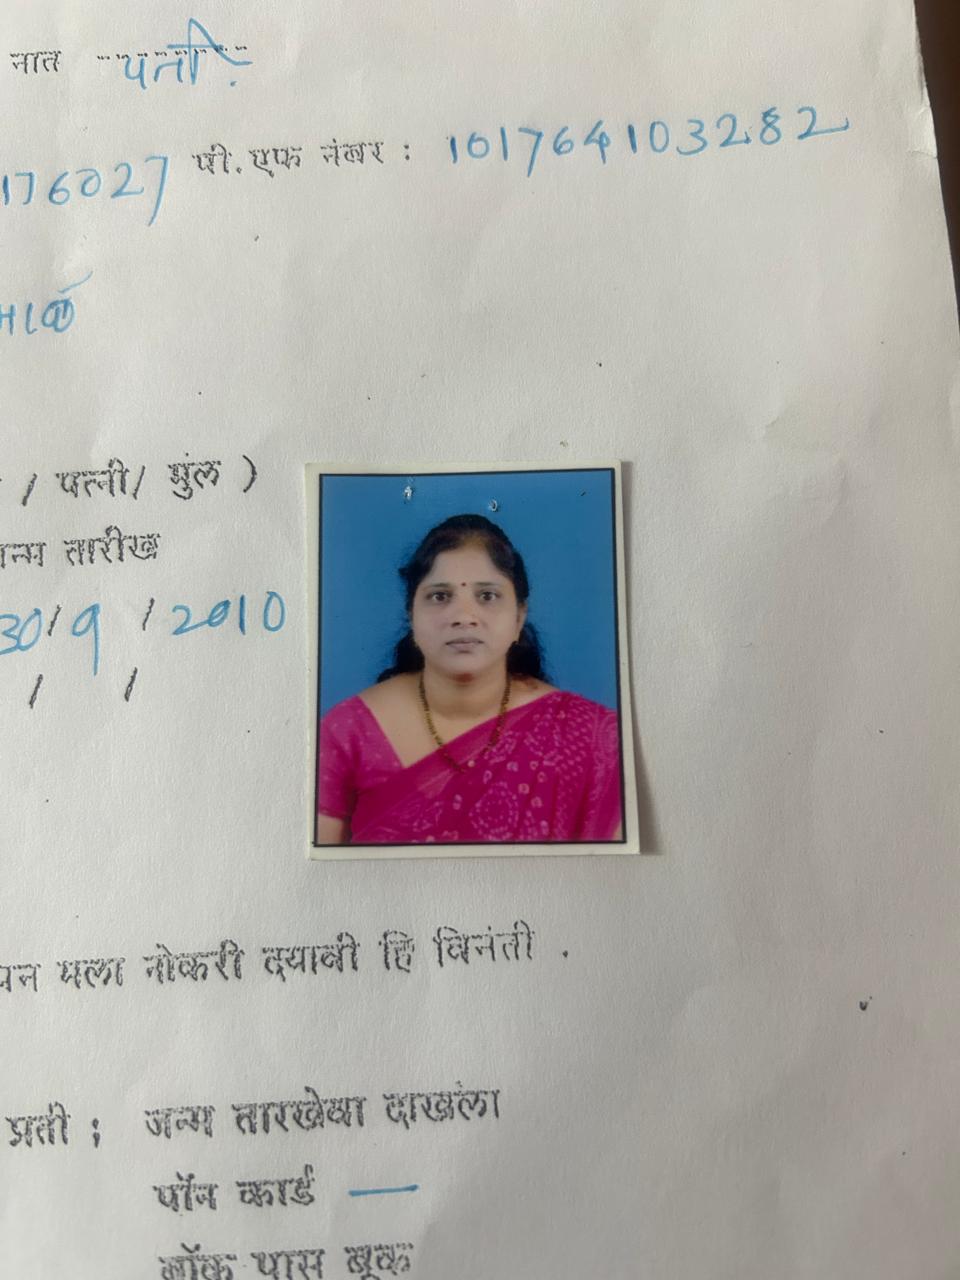 नात पती
176027 पी.एफ नंबर : 101764103282
/ पत्नी/ मुंल )
जन्म तारीख
30/9/2010
/ /
मला नोकरी दयावी हि विनंती .
प्रती ; जन्म तारखेचा दाखला
पॅान कार्ड —
बॅाक पास बूक